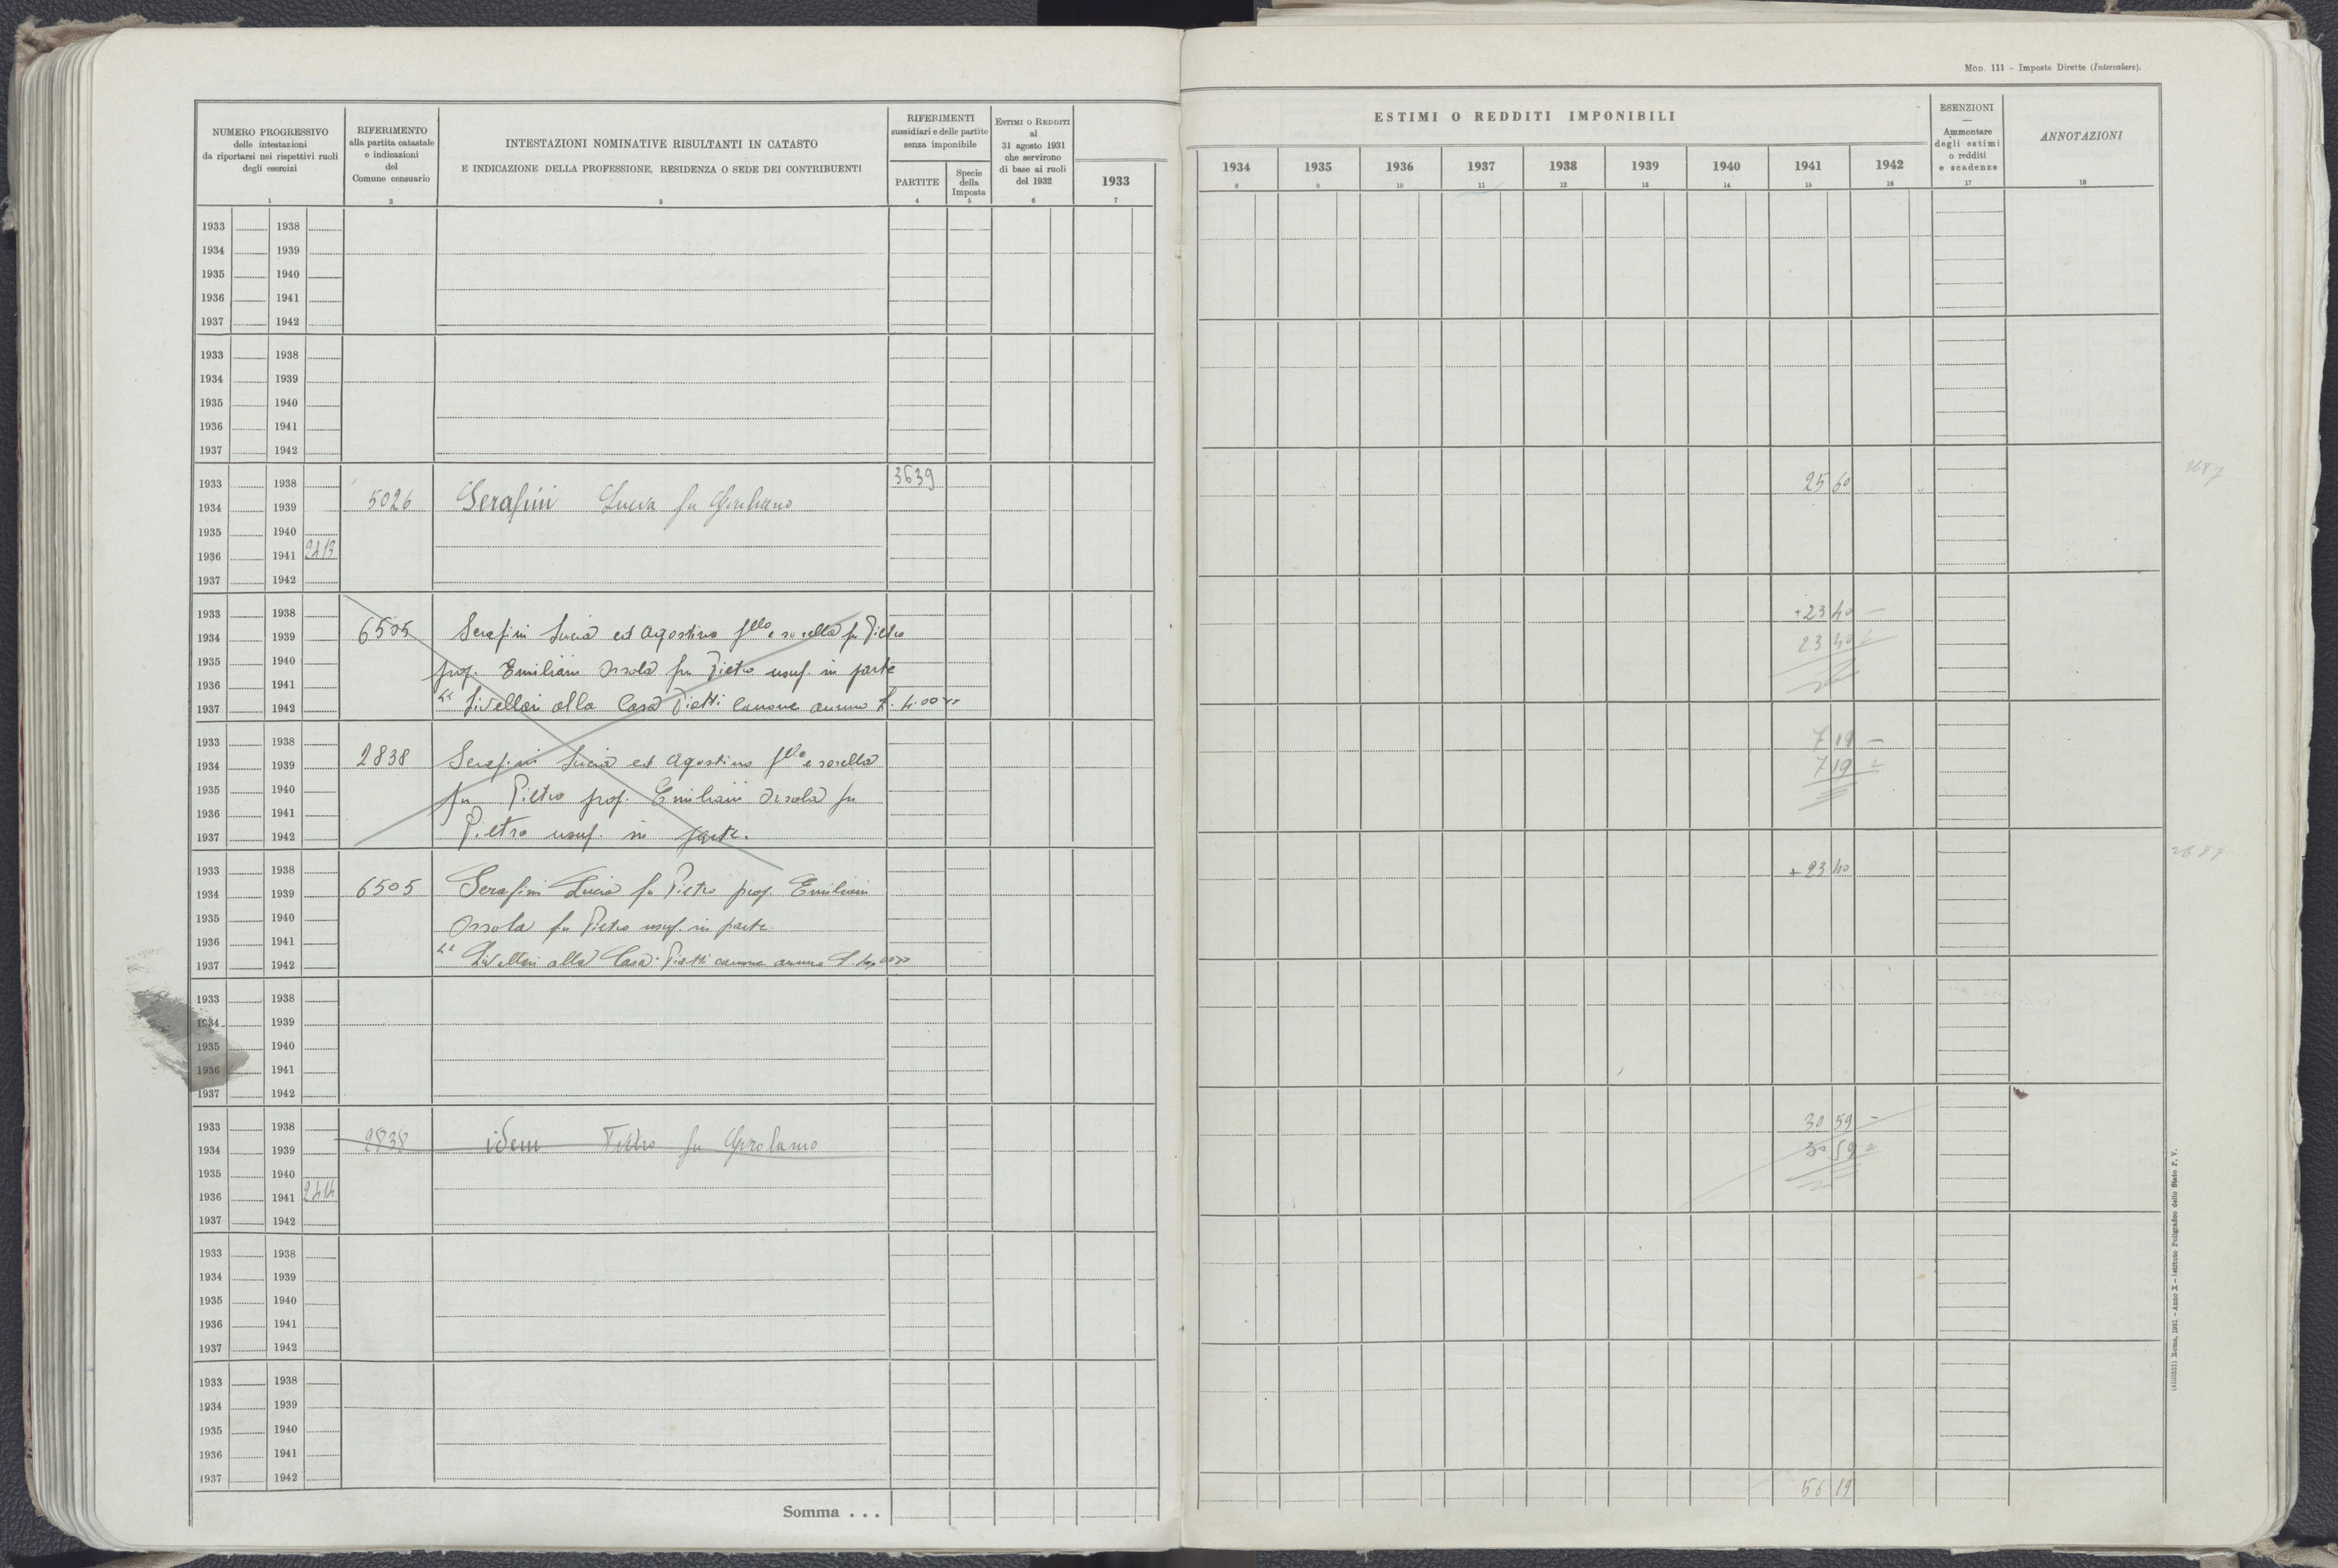 Mod. 111 – Imposte Dirette (Intercalare).
NUMERO PROGRESSIVO
delle intestazioni
da riportarsi nei rispettivi ruoli
degli esercizi
1
RIFERIMENTO
alla partita catastale
e indicazioni
del
Comune censuario
2
INTESTAZIONI NOMINATIVE RISULTANTI IN CATASTO
E INDICAZIONE DELLA PROFESSIONE, RESIDENZA O SEDE DEI CONTRIBUENTI
3
RIFERIMENTI
sussidiari e delle partite
senza imponibile
PARTITE
4
Specie
della
Imposta
5
Estimi o Redditi
al
31 agosto 1931
che servirono
di base ai ruoli
del 1932
6
1933
7
ESTIMI O REDDITI IMPONIBILI
1934 1935 1936 1937 1938 1939 1940 1941 1942
8 9 10 11 12 13 14 15 16
ESENZIONI
—
Ammontare
degli estimi
o redditi
e scadenze
17
ANNOTAZIONI
18
1933 1938
1934 1939
1935 1940
1936 1941
1937 1942
1933 1938
1934 1939
1935 1940
1936 1941
1937 1942
1933 1938 3639 25 60 2687
1934 1939 5026 Serafini Lucia fu Girolamo
1935 1940
1936 1941 2413
1937 1942
1933 1938 +23 40 –
1934 1939 6505 Serafini Lucia ed Agostino fllo e sorella fu Pietro 23 40
1935 1940 prop. Emiliani Orsola fu Pietro usuf. in parte
1936 1941
1937 1942 Livellari alla Casa Piatti canone annuo L. 4.00
1933 1938 7 19 –
1934 1939 2838 Serafini Lucia ed Agostino fllo e sorella 7 19
1935 1940 fu Pietro prop. Emiliani Orsola fu
1936 1941
1937 1942 Pietro usuf. in parte.
1933 1938 +23 40 2688
1934 1939 6505 Serafini Lucia fu Pietro prop. Emiliani
1935 1940 Orsola fu Pietro usuf. in parte
1936 1941
1937 1942 Livellari alla Casa Piatti canone annuo L.
1933 1938
1934 1939
1935 1940
1936 1941
1937 1942
1933 1938 30 59 –
1934 1939 2838 idem Pietro fu Girolamo 30 59
1935 1940
1936 1941 2414
1937 1942
1933 1938
1934 1939
1935 1940
1936 1941
1937 1942
1933 1938
1934 1939
1935 1940
1936 1941
1937 1942
Somma . . . 56 19
(4103551) Roma, 1931 – Anno X – Istituto Poligrafico dello Stato P. V.